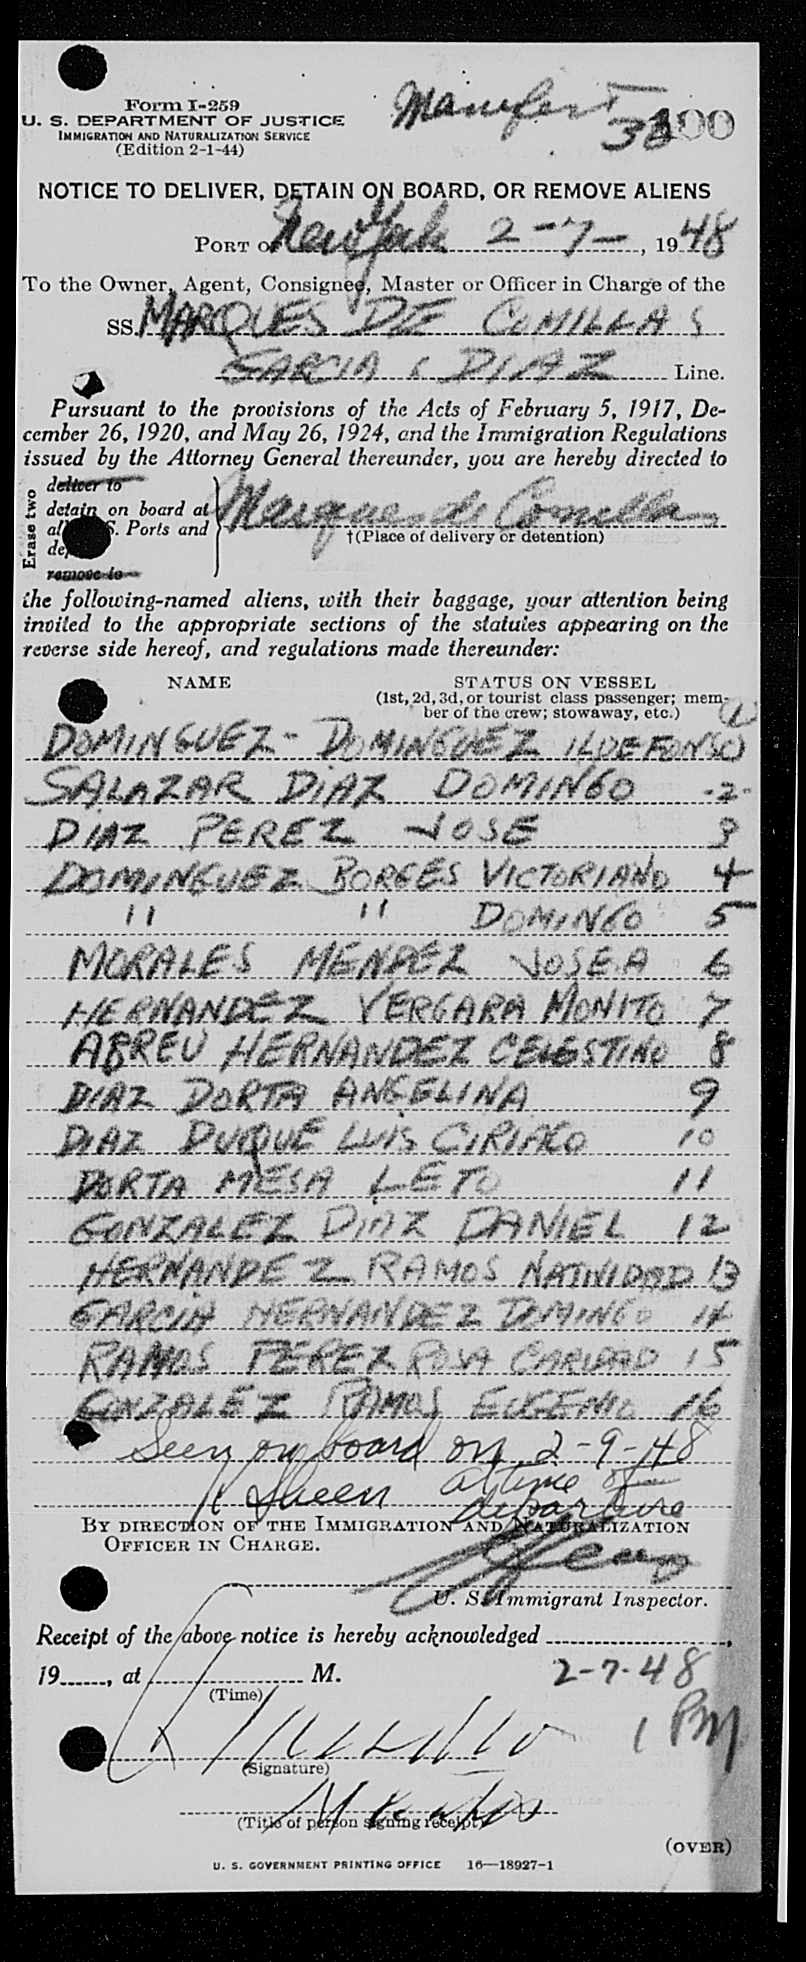 Form I-259
U. S. DEPARTMENT OF JUSTICE
IMMIGRATION AND NATURALIZATION SERVICE
(Edition 2-1-44)
Manifest
38 100
NOTICE TO DELIVER, DETAIN ON BOARD, OR REMOVE ALIENS
PORT OF New York 2-7-, 1948
To the Owner, Agent, Consignee, Master or Officer in Charge of the
SS. MARQUES DE COMILLAS
GARCIA & DIAZ Line.
Pursuant to the provisions of the Acts of February 5, 1917, De-
cember 26, 1920, and May 26, 1924, and the Immigration Regulations
issued by the Attorney General thereunder, you are hereby directed to
Erase two
deliver to
detain on board at
S. Ports and
remove to
Marques de Comillas
†(Place of delivery or detention)
the following-named aliens, with their baggage, your attention being
invited to the appropriate sections of the statutes appearing on the
reverse side hereof, and regulations made thereunder:
NAME STATUS ON VESSEL
(1st, 2d, 3d, or tourist class passenger; mem-
ber of the crew; stowaway, etc.)
DOMINGUEZ - DOMINGUEZ ILDEFONSO 1
SALAZAR DIAZ DOMINGO -2-
DIAZ PEREZ JOSE 3
DOMINGUEZ BORGES VICTORIANO 4
" " DOMINGO 5
MORALES MENDEZ JOSE A 6
HERNANDEZ VERGARA MONITO 7
ABREU HERNANDEZ CELESTINO 8
DIAZ DORTA ANGELINA 9
DIAZ DUQUE LUIS CIRIACO 10
DORTA MESA LETO 11
GONZALEZ DIAZ DANIEL 12
HERNANDEZ RAMOS NATIVIDAD 13
GARCIA HERNANDEZ DOMINGO 14
RAMOS PEREZ ROSA CARIDAD 15
GONZALEZ RAMOS EUGENIO 16
Seen on board on 2-9-48
at time of
departure
BY DIRECTION OF THE IMMIGRATION AND NATURALIZATION
OFFICER IN CHARGE.
U. S. Immigrant Inspector.
Receipt of the above notice is hereby acknowledged ,
19 , at M. 2-7-48
(Time) 1 PM
(Signature)
(Title of person signing receipt)
(OVER)
U. S. GOVERNMENT PRINTING OFFICE 16—18927-1